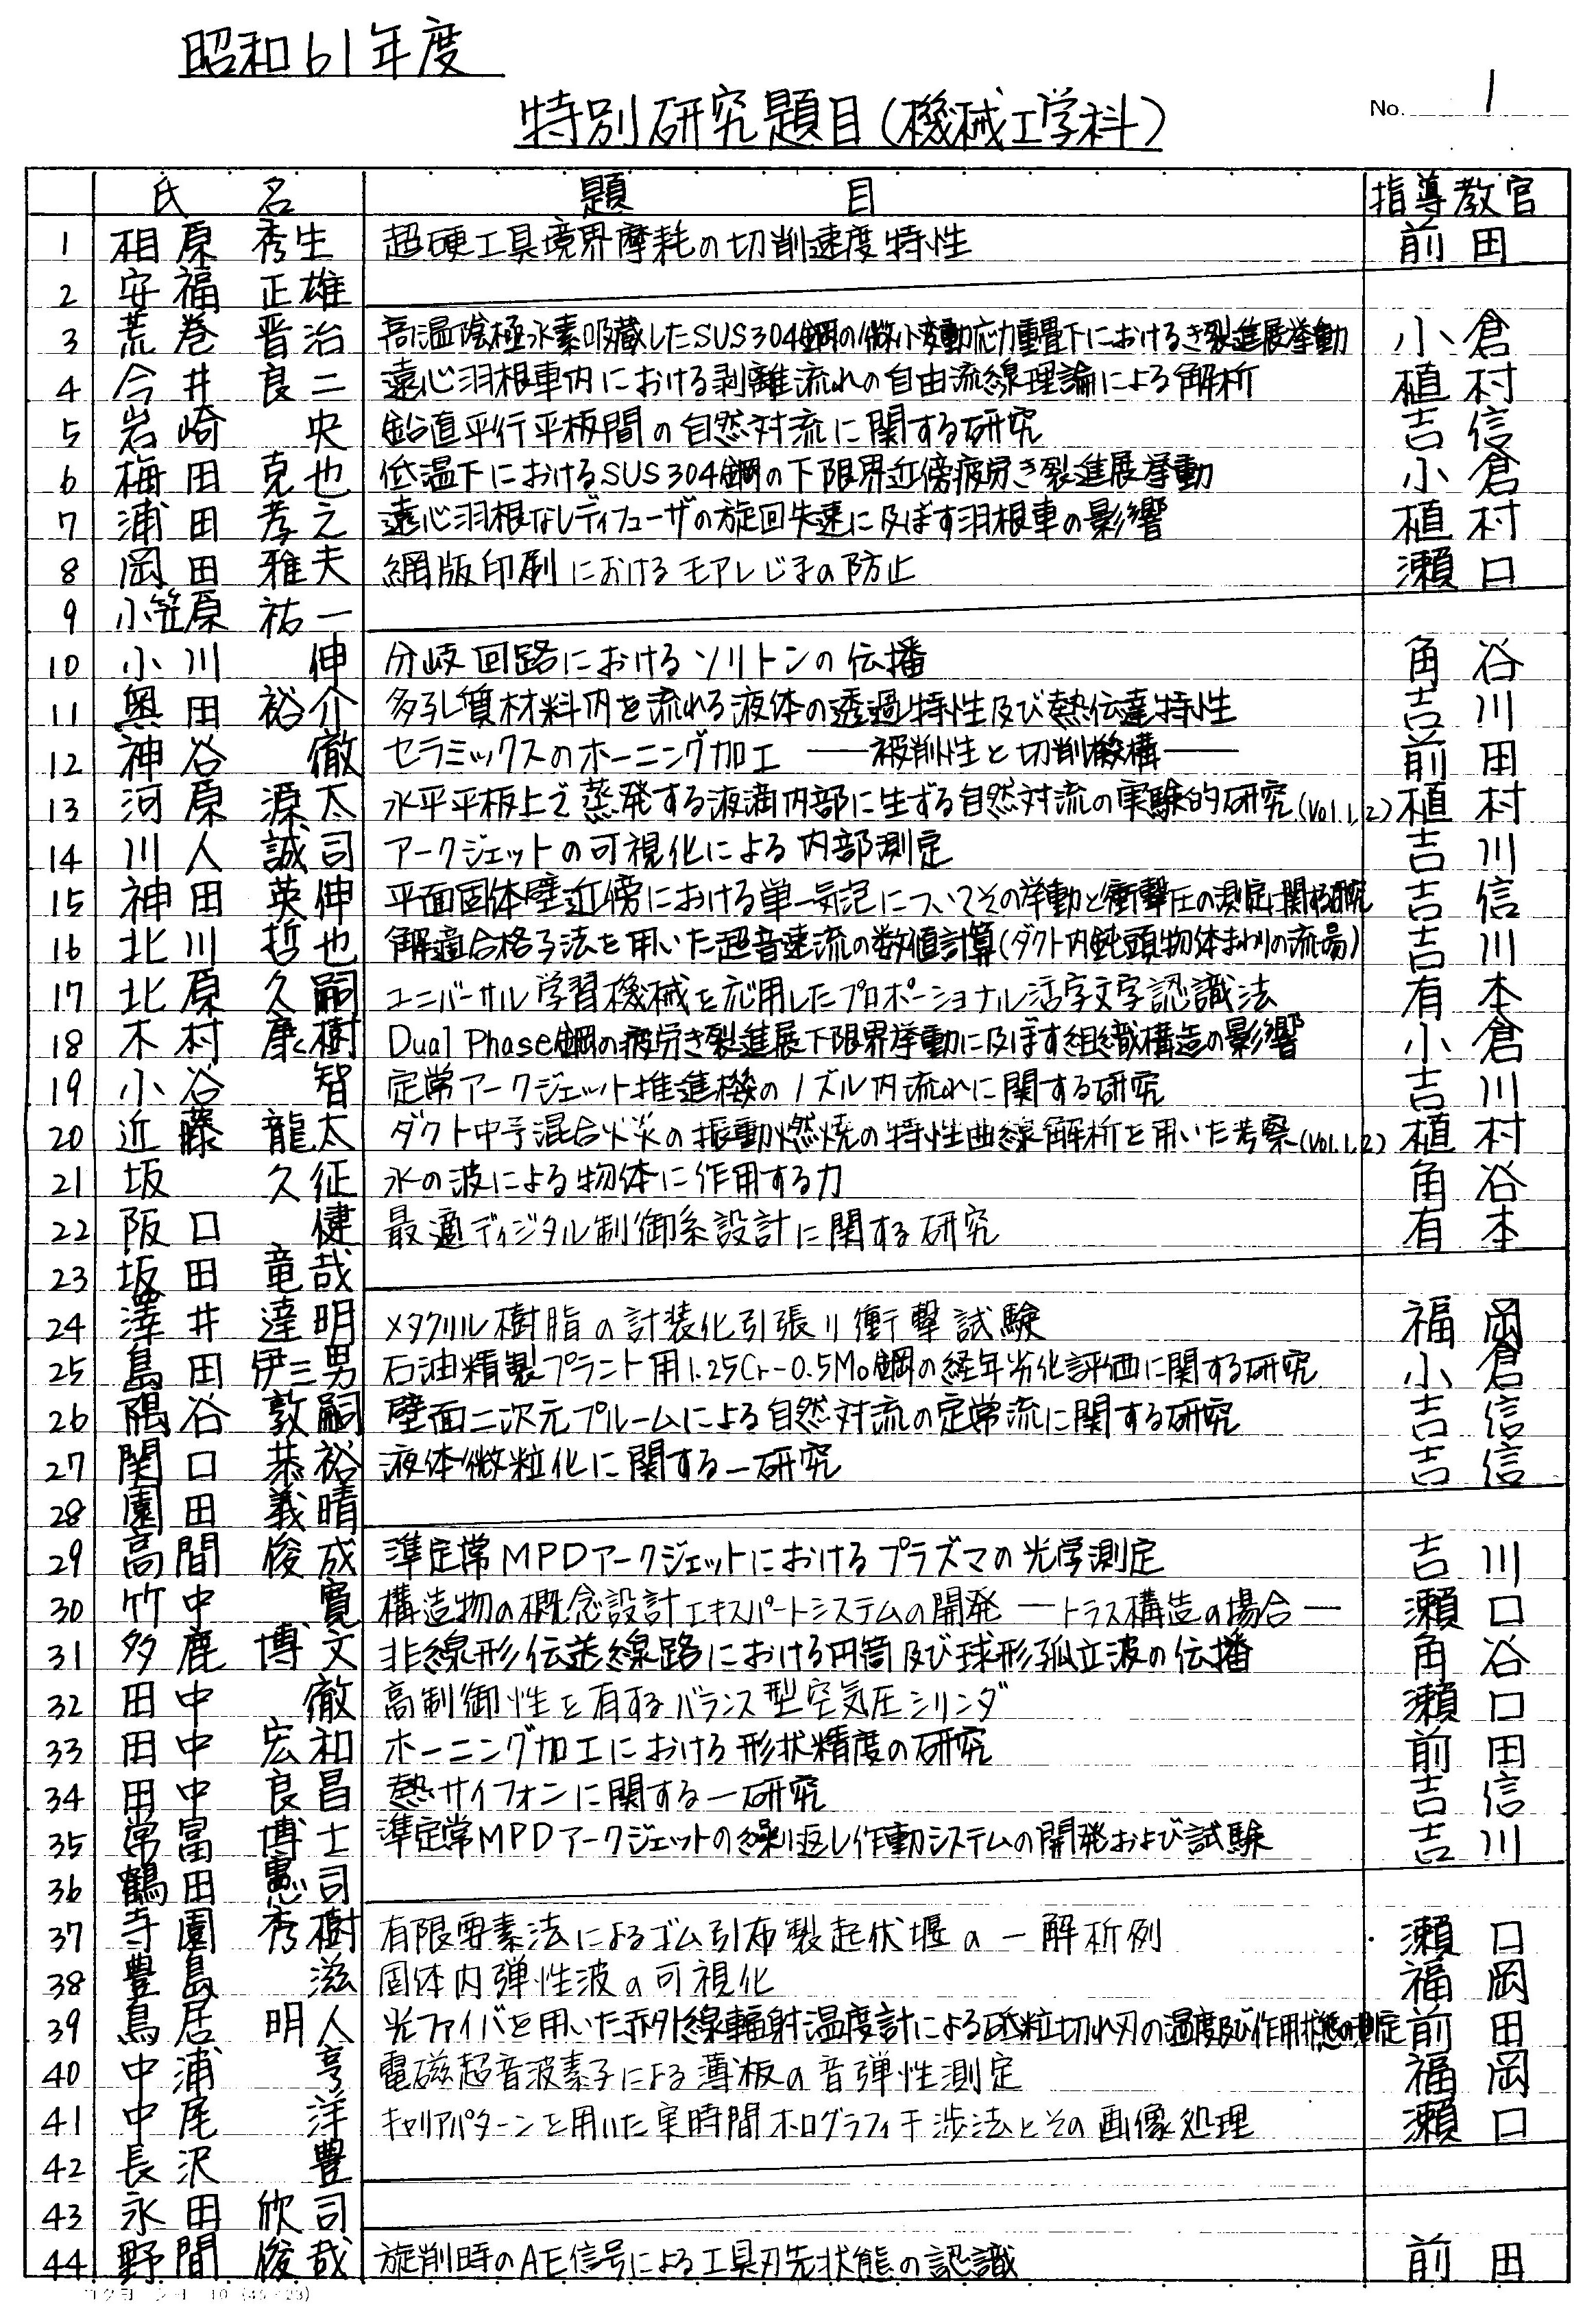 昭和61年度
特別研究題目(機械工学科)
No. 1
氏 名 題 目 指導教官
1 相原 秀生 超硬工具境界摩耗の切削速度特性 前田
2 安福 正雄
3 荒巻 晋治 高温陰極水素吸蔵したSUS304鋼の微小変動応力重畳下におけるき裂進展挙動 小倉
4 今井 良二 遠心羽根車内における剥離流れの自由流線理論による解析 植村
5 岩崎 央 鉛直平行平板間の自然対流に関する研究 吉信
6 梅田 克也 低温下におけるSUS304鋼の下限界近傍疲労き裂進展挙動 小倉
7 浦田 孝之 遠心羽根なしディフューザの旋回失速に及ぼす羽根車の影響 植村
8 岡田 雅夫 網版印刷におけるモアレじまの防止 瀬口
9 小笠原 祐一
10 小川 伸 分岐回路におけるソリトンの伝播 角谷
11 奥田 裕介 多孔質材料内を流れる液体の透過特性及び熱伝達特性 吉川
12 神谷 徹 セラミックスのホーニング加工 ――被削性と切削機構―― 前田
13 河原 源太 水平平板上で蒸発する液滴内部に生ずる自然対流の実験的研究(Vol.1,2) 植村
14 川人 誠司 アークジェットの可視化による内部測定 吉川
15 神田 英伸 平面固体壁近傍における単一気泡についてその挙動と衝撃圧の測定に関する研究 吉信
16 北川 哲也 解適合格子法を用いた超音速流の数値計算(ダクト内鈍頭物体まわりの流れ場) 吉川
17 北原 久嗣 ユニバーサル学習機械を応用したプロポーショナル活字文字認識法 有本
18 木村 康樹 Dual Phase鋼の疲労き裂進展下限界挙動に及ぼす組織構造の影響 小倉
19 小谷 智 定常アークジェット推進機のノズル内流れに関する研究 吉川
20 近藤 龍太 ダクト中予混合火炎の振動燃焼の特性曲線解析を用いた考察(Vol.1,2) 植村
21 坂 久征 水の波による物体に作用する力 角谷
22 阪口 健 最適ディジタル制御系設計に関する研究 有本
23 坂田 竜哉
24 澤井 達明 メタクリル樹脂の計装化引張り衝撃試験 福岡
25 島田 伊三男 石油精製プラント用1.25Cr-0.5Mo鋼の経年劣化評価に関する研究 小倉
26 隅谷 敦嗣 壁面二次元プルームによる自然対流の定常流に関する研究 吉信
27 関口 恭裕 液体微粒化に関する一研究 吉信
28 園田 義晴
29 高間 俊成 準定常MPDアークジェットにおけるプラズマの光学測定 吉川
30 竹中 寛 構造物の概念設計エキスパートシステムの開発 ―トラス構造の場合― 瀬口
31 多鹿 博文 非線形伝送線路における円筒及び球形孤立波の伝播 角谷
32 田中 徹 高制御性を有するバランス型空気圧シリンダ 瀬口
33 田中 宏和 ホーニング加工における形状精度の研究 前田
34 田中 良昌 熱サイフォンに関する一研究 吉信
35 常富 博士 準定常MPDアークジェットの繰り返し作動システムの開発および試験 吉川
36 鶴田 憲司
37 寺園 秀樹 有限要素法によるゴム引布製起伏堰の一解析例 瀬口
38 豊島 滋 固体内弾性波の可視化 福岡
39 鳥居 明人 光ファイバを用いた赤外線輻射温度計による砥粒切れ刃の温度及び作用状態の測定 前田
40 中浦 亨 電磁超音波素子による薄板の音弾性測定 福岡
41 中尾 洋 キャリアパターンを用いた実時間ホログラフィ干渉法とその画像処理 瀬口
42 長沢 豊
43 永田 欣司
44 野間 俊哉 旋削時のAE信号による工具刃先状態の認識 前田